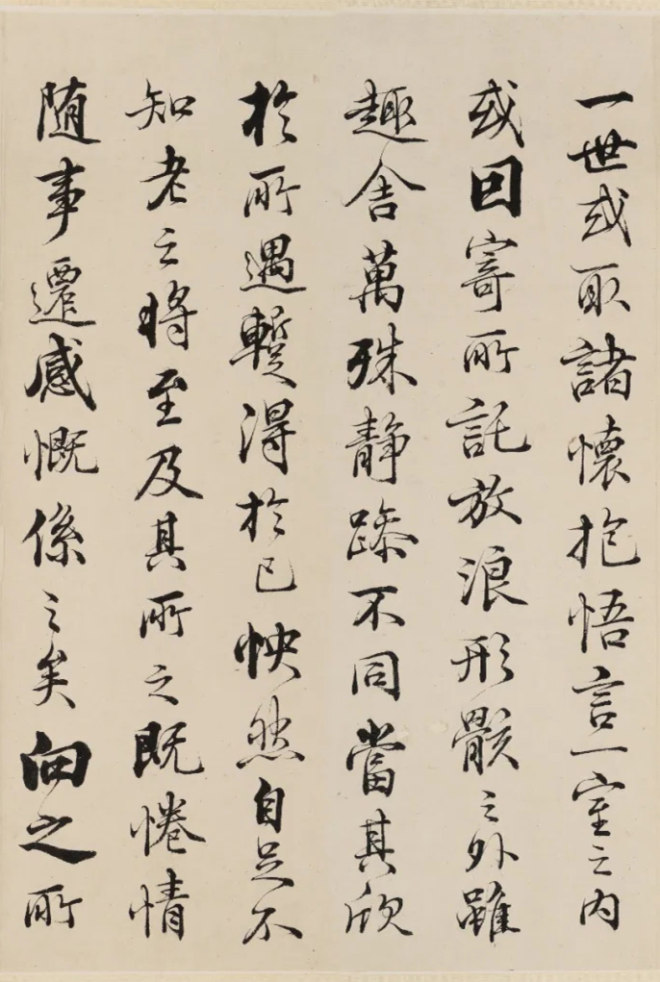 一世或取諸懷抱悟言一室之内
或因寄所託放浪形骸之外雖
趣舍萬殊静躁不同當其欣
於所遇暫得於己怏然自足不
知老之將至及其所之既惓情
随事遷感慨係之矣向之所